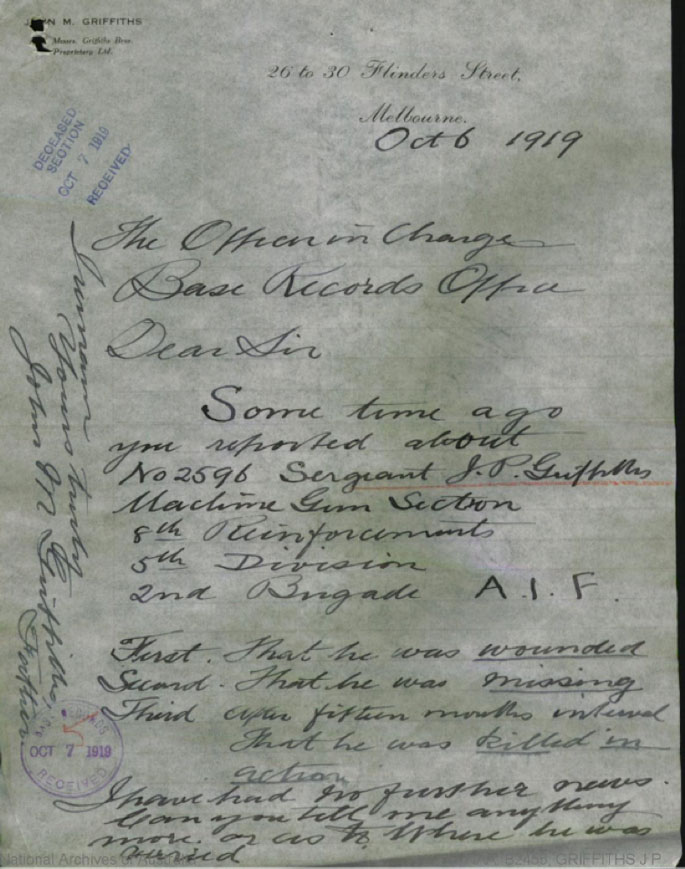 JOHN M. GRIFFITHS
Messrs. Griffiths Bros.
Proprietary Ltd.
26 to 30 Flinders Street,
Melbourne.
Oct 6 1919
DECEASED
SECTION
OCT 7 1919
RECEIVED
The Officer in Charge
Base Records Office
Dear Sir
Some time ago
you reported about
No 2596 Sergeant J. P. Griffiths
Machine Gun Section
8th Reinforcements
5th Division
2nd Brigade A.I.F.
First. That he was wounded
Second. That he was missing
Third after fifteen months interval
that he was killed in
action
I have had no further news.
Can you tell me anything
more. or as to where he was
buried
I remain
Yours truly
John M Griffiths,
Father.
RECORDS
OCT 7 1919
RECEIVED
National Archives of Australia
B2455, GRIFFITHS J P